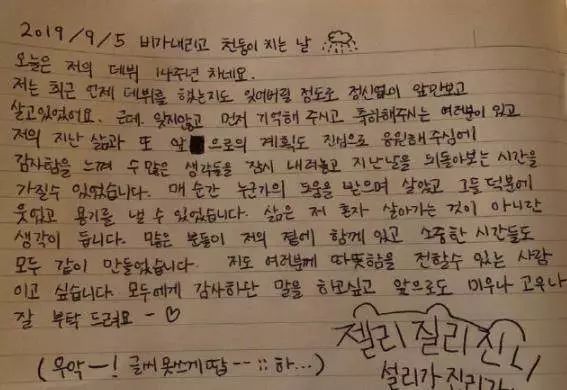 2019/9/5 비가내리고 천둥이 치는 날
오늘은 저의 데뷔 14주년 차네요.
저는 최근 언제 데뷔를 했는지도 잊어버릴 정도로 정신없이 앞만보고
살고있었어요. 근데. 잊지않고 먼저 기억해 주시고 축하해주시는 여러분이 있고
저의 지난 삶과 또 앞으로의 계획도 진심으로 응원해주심에
감사함을 느껴 수 많은 생각들을 잠시 내려놓고 지난날을 뒤돌아보는 시간을
가질수 있었습니다. 매 순간 누군가의 도움을 받으며 살았고 그들 덕분에
웃었고 용기를 낼 수 있었습니다. 삶은 저 혼자 살아가는 것이 아니란
생각이 듭니다. 많은 분들이 저의 곁에 함께 있고 소중한 시간들도
모두 같이 만들었습니다. 저도 여러분께 따뜻함을 전할수 있는 사람
이고 싶습니다. 모두에게 감사하단 말을 하고싶고 앞으로도 미우나 고우나
잘 부탁 드려요 - ♡
젤리 질리 진리
(우악-! 글씨 못쓰게땁 -- ;; 하...)
설리가 진리가